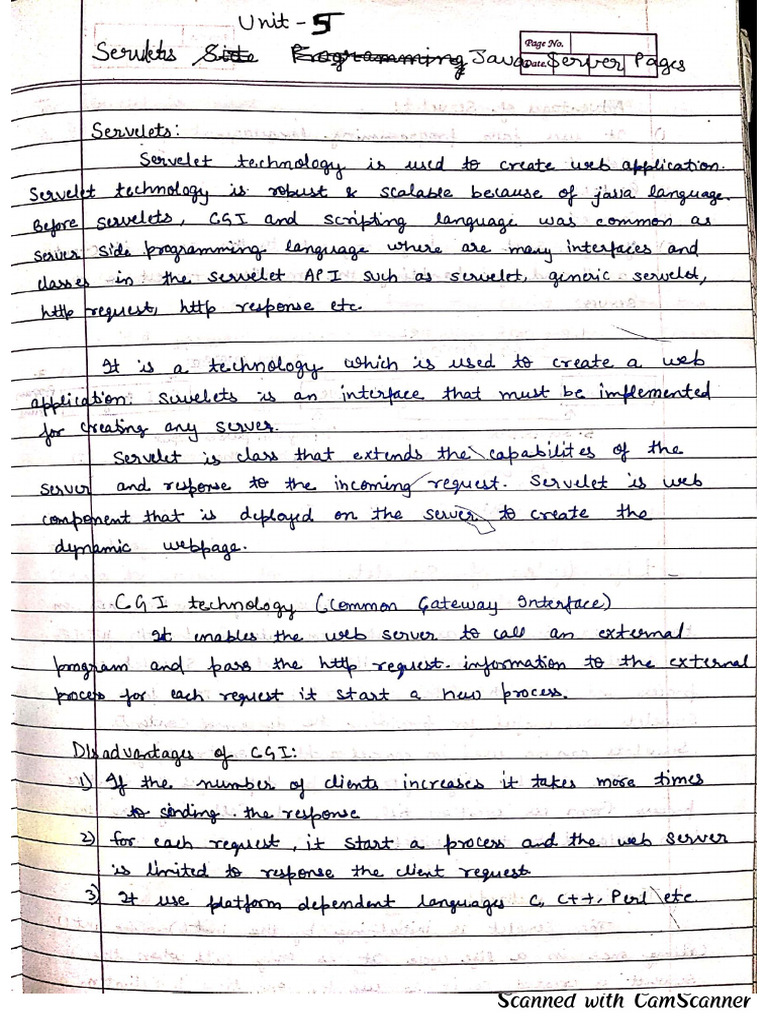 Unit - 5
Servlets Side Programming Java Server Pages
Page No.
Date
Servelets:
Servelet technology is used to create web application.
Servelet technology is robust & scalable because of java language.
Before servelets, CGI and scripting language was common as
server side programming language where are many interfaces and
classes in the servelet API such as servelet, gineric servelet,
http request, http response etc.
It is a technology which is used to create a web
application. Servelets is an interface that must be implemented
for creating any server.
Servelet is class that extends the capabilites of the
server and response to the incoming request. Servelet is web
component that is deployed on the server to create the
dynamic webpage.
CGI technology (Common Gateway Interface)
It enables the web server to call an external
program and pass the http request information to the external
process for each request it start a new process.
Disadvantages of CGI:
1) If the number of clients increases it takes more times
to sinding the response
2) for each request, it start a process and the web server
is limited to response the client request
3) It use platform dependent languages C, C++, Perl etc.
Scanned with CamScanner